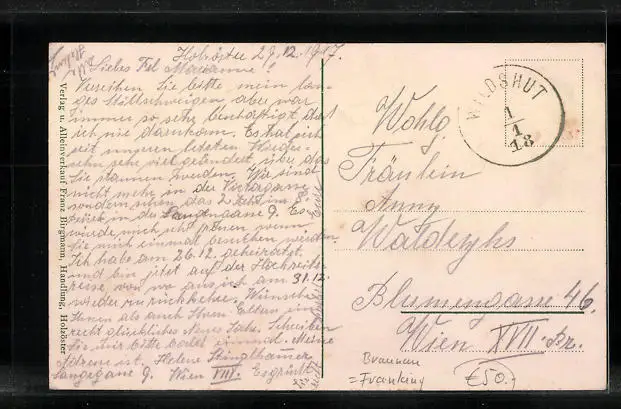 Hohöster 29.12.1917.
Liebes Frl
Verzeihen Sie bitte mein lan-
ges Stillschweigen, aber war
immer so sehr beschäftigt, daß
ich nie dazu kam. Es hat sich
seit unseren letzten Wieder-
sehn sehr viel geändert, über das
Sie staunen werden. Wir sind
nicht mehr in der
sondern schon das 2. Jahr im 8.
Bezirk in der Langegasse 9. Es
würde mich sehr freuen wenn
Sie mich einmal besuchen werden.
Ich habe am 26.12. geheiratet
und bin jetzt auf der Hochzeits-
reise von wo aus ich am 31.12.
wieder zurückkehre. Wünsche
Ihnen als auch Ihren Eltern ein
recht glückliches Neues Jahr. Schreiben
Sie mir bitte einmal. Meine
Adresse ist. Helene
Langegasse 9. Wien VIII. Es grüßt
Verlag u. Alleinverkauf Franz Birgmann, Handlung, Hohöster
WILDSHUT
1
1
18
Wohlg.
Fräulein
Anny
Blumengasse 46.
Wien XVII. Bz.
Braunau
=Franking
€50.-